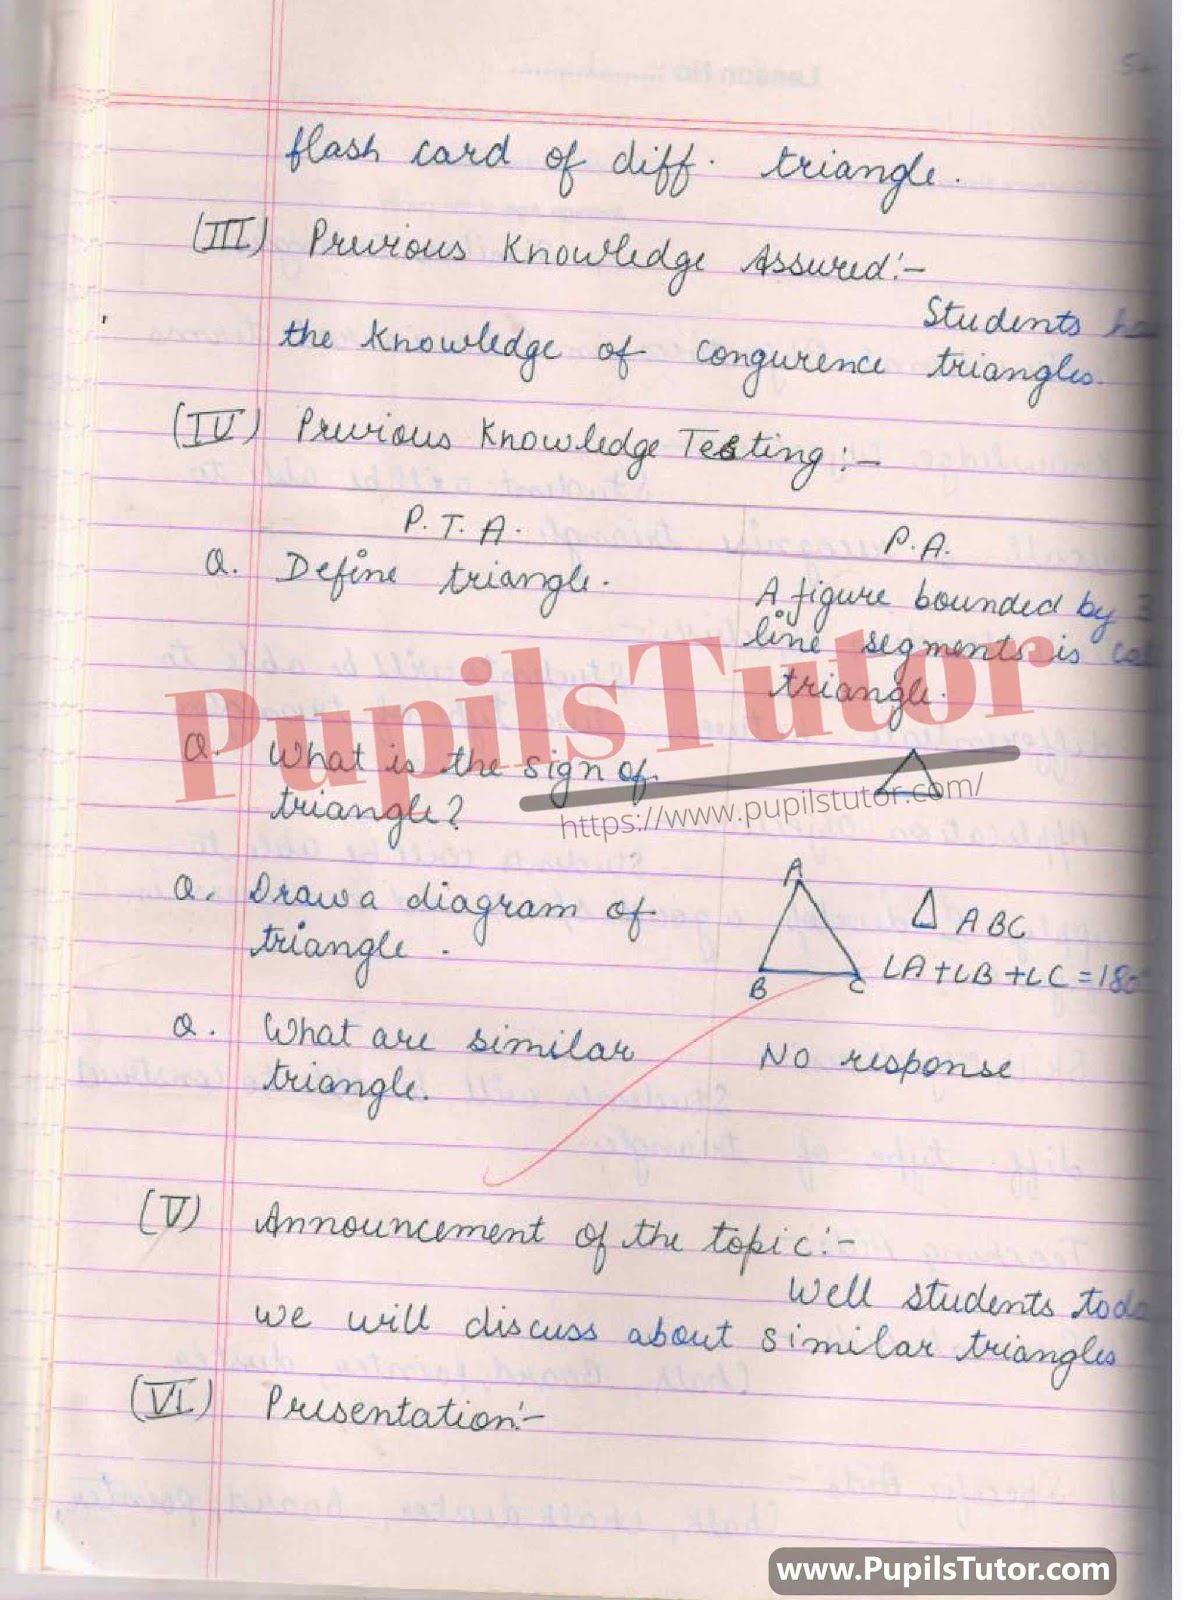 flash card of diff. triangle.
(III) Previous Knowledge Assured:-
Students
the knowledge of congurence triangles.
(IV) Previous Knowledge Testing :-
P.T.A. P.A.
Q. Define triangle. A figure bounded by 3
line segments is
triangle.
Q. What is the sign of
triangle?
Q. Draw a diagram of
triangle.
A
B C
△ ABC
∠A+∠B+∠C=180°
Q. What are similar No response
triangle.
(V) Announcement of the topic:-
Well students
we will discuss about similar triangles
(VI.) Presentation:-
PupilsTutor
https://www.pupilstutor.com/
www.PupilsTutor.com